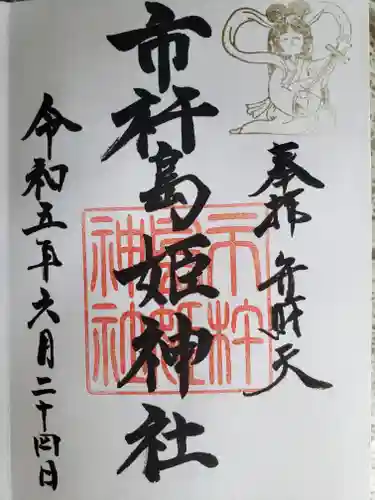 奉拝 弁財天
市杵島姫神社
市杵島姫神社
令和五年六月二十四日